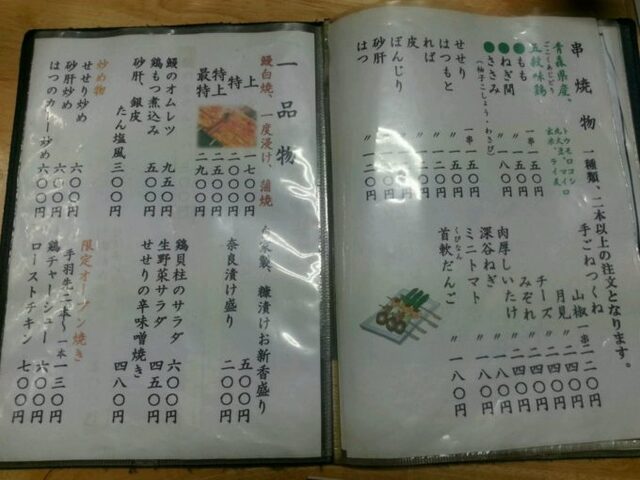 串焼物
一種類、二本以上の注文となります。
青森県産、
五穀味鶏
ごこくあじどり
トウモロコシ
大豆、マイロ
玄米、ライ麦
もも 一串 一五〇円
ねぎ間 〃 一八〇円
ささみ 〃 一五〇円
(柚子こしょう・わさび)
せせり 一串 一五〇円
はつもと 〃 一五〇円
ればー 〃 一二〇円
皮 〃
ぼんじり 〃
砂肝 〃
はつ 〃 一二〇円
手ごねつくね 一串 一二〇円
山椒 〃 二四〇円
月見 〃 二四〇円
チーズ 〃 二四〇円
みぞれ 〃 二四〇円
肉厚しいたけ 〃 一八〇円
深谷ねぎ 〃 一八〇円
ミニトマト 〃 一八〇円
首軟だんご 〃 一八〇円
くびなん
一品物
鰻白焼、一度浸け、蒲焼
上 一七〇〇円
特上 二〇〇〇円
特上 二五〇〇円
最特上 二九〇〇円
鰻のオムレツ 九五〇円
鶏もつ煮込み 五〇〇円
砂肝、銀皮
たん塩風 三〇〇円
炒め物
せせり炒め 六〇〇円
砂肝炒め 六〇〇円
はつのカレー炒め 六〇〇円
自家製、糠漬けお新香盛り 五〇〇円
奈良漬け盛り 二〇〇円
鶏貝柱のサラダ 六〇〇円
生野菜サラダ 四五〇円
せせりの辛味噌焼き 四八〇円
限定オーブン焼き
手羽先二本〜 一本 一三〇円
鶏チャーシュー 六〇〇円
ローストチキン 七〇〇円